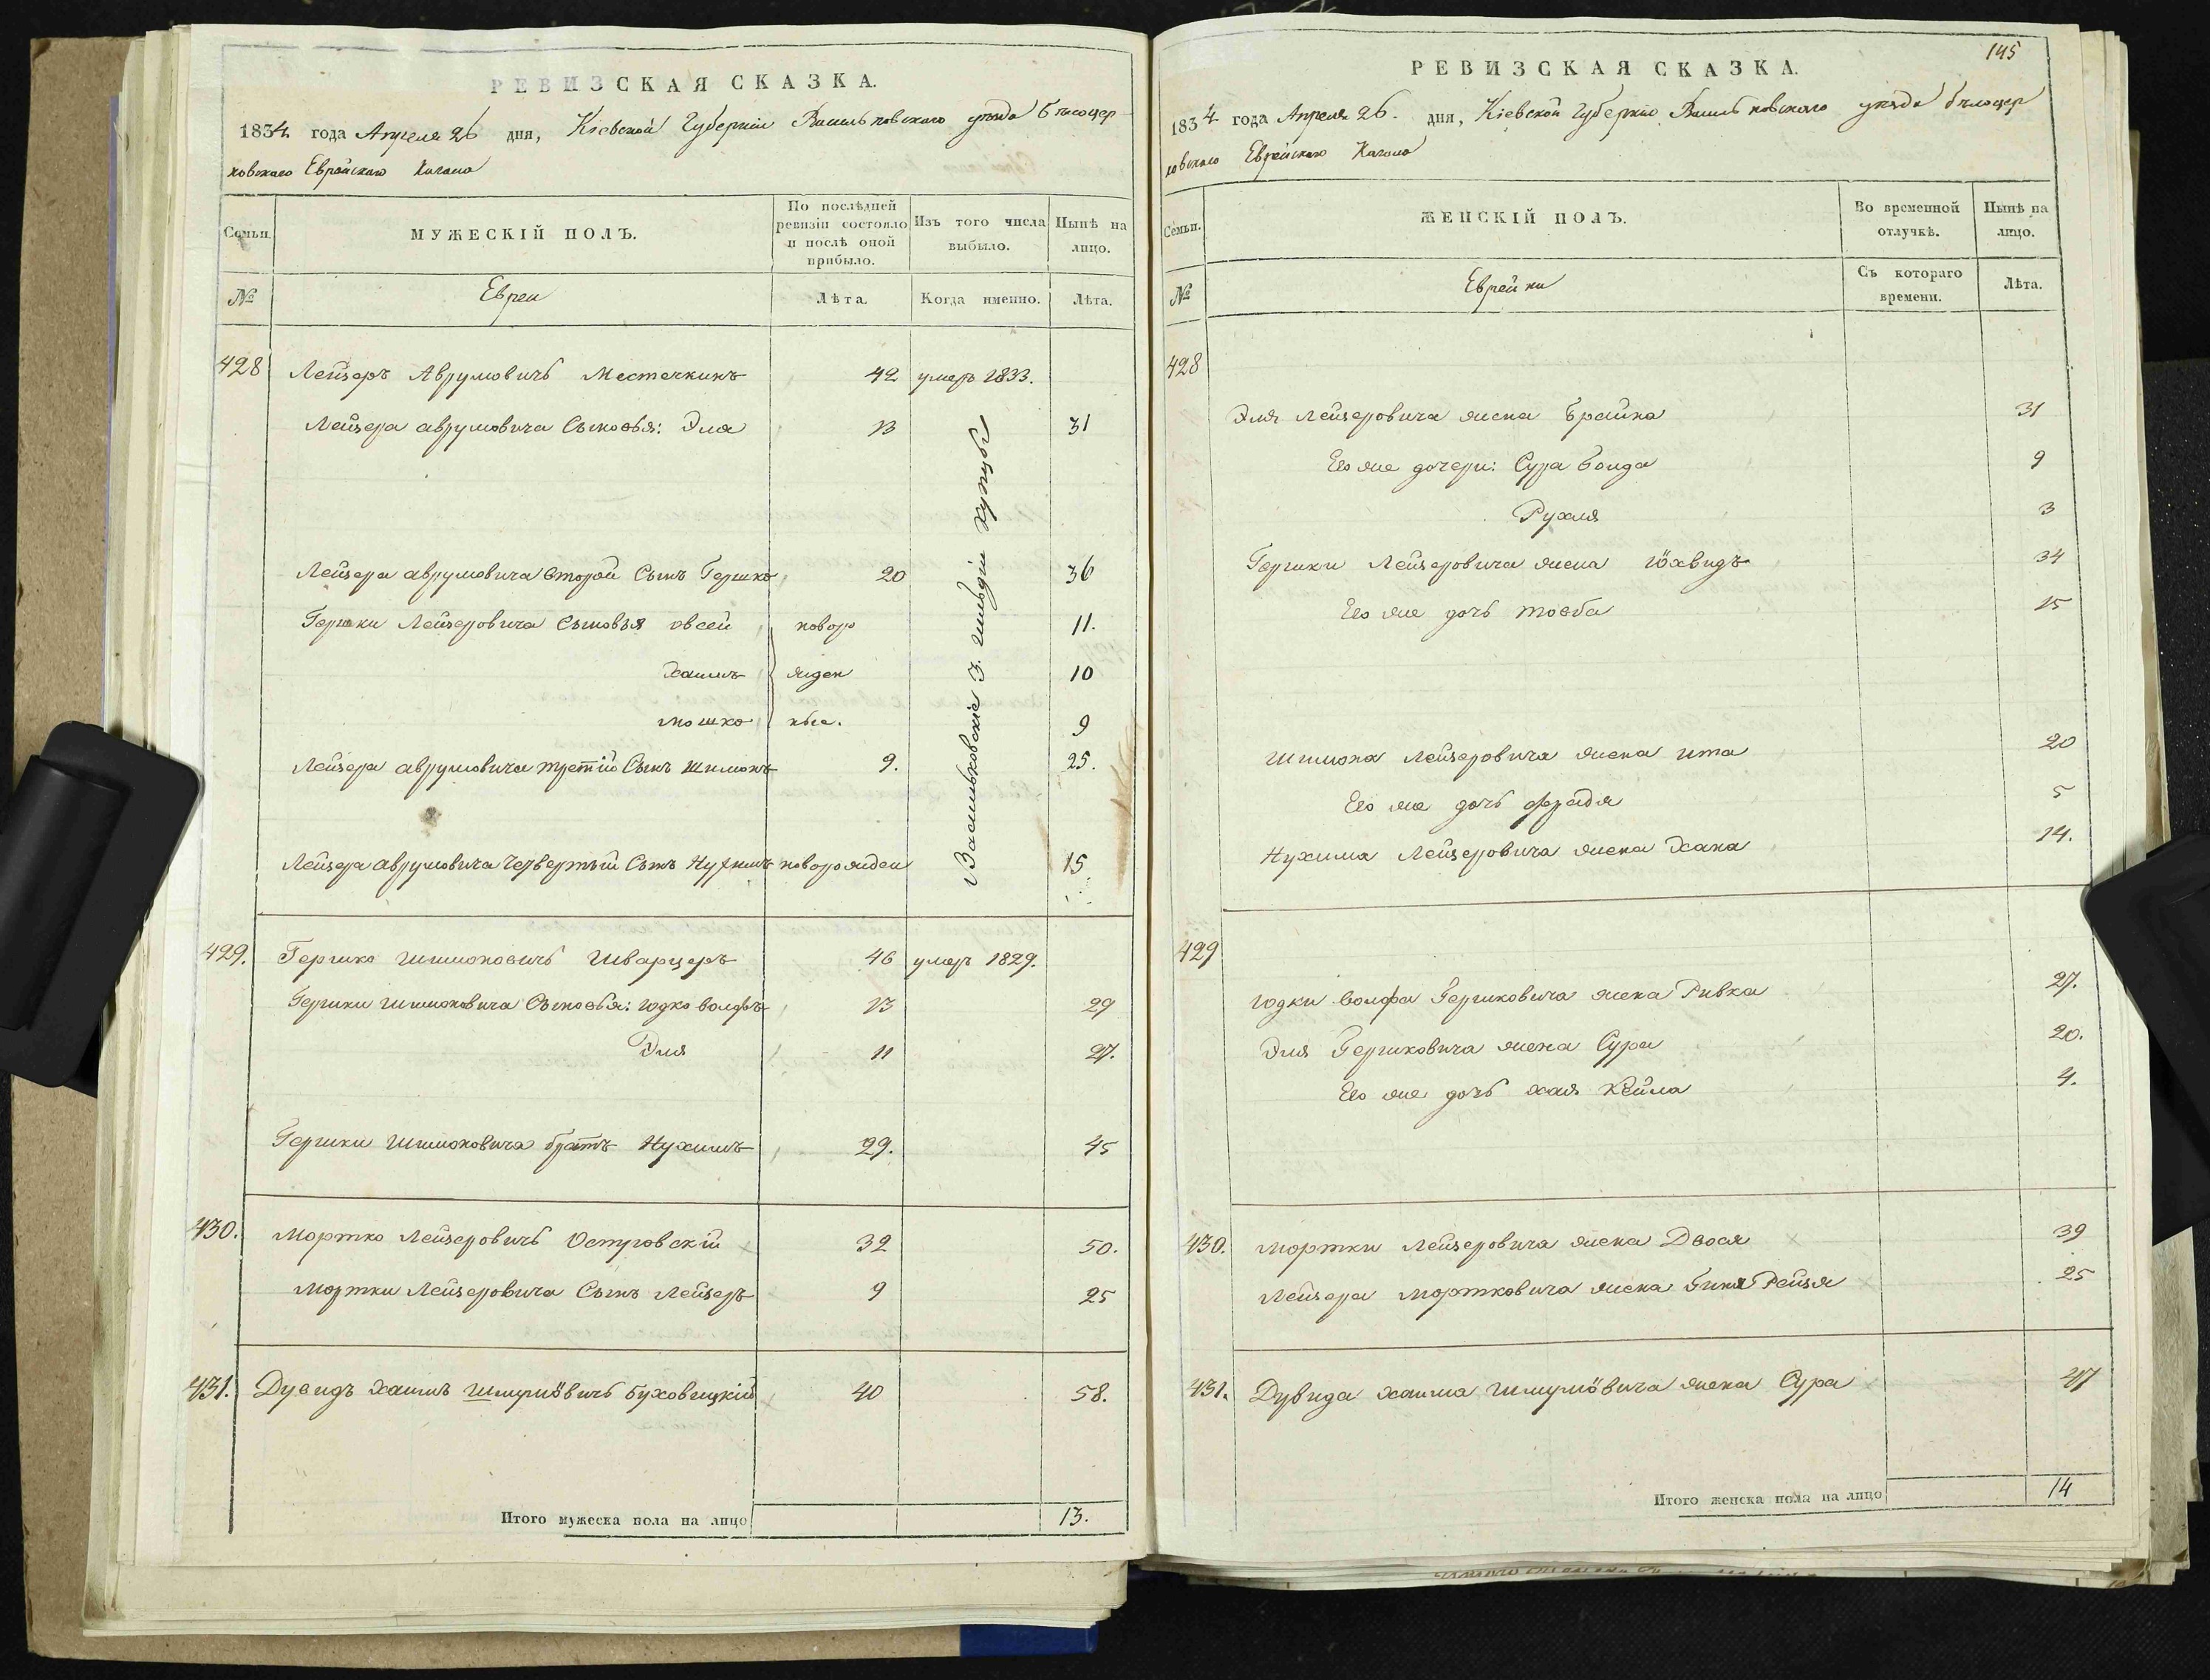 РЕВИЗСКАЯ СКАЗКА.
1834 года Апреля 26 дня, Кіевской Губерніи Васильковскаго уезда Белоцер
ковскаго Еврейскаго Кагала
Семьи.
МУЖЕСКІЙ ПОЛЪ.
По послѣдней ревизіи состояло и послѣ оной прибыло.
Изъ того числа выбыло.
Нынѣ на лицо.
№
Евреи
Лѣта.
Когда именно.
Лѣта.
428 Лейзеръ Аврумовичъ Местечкинъ 42 умеръ 1833.
Лейзера аврумовича Сыновья: Эля 13 31
Лейзера аврумовича второй Сынъ Гершко 20 36
Гершки Лейзеровича Сыновья овсей новоро 11.
Хаимъ жден 10
мошко ные. 9
Лейзера аврумовича третій Сынъ Шимонъ 9. 25.
Лейзера аврумовича Четвертый Сынъ Нухимъ новорожден 15
Васильковскіе 3. гильдіи купцы
429. Гершко Шимоновичъ Шварцеръ 46 умеръ 1829.
Гершки Шимоновича Сыновья: Юдко волфъ 13 29
Эля 11 27.
Гершки Шимоновича братъ Нухимъ 29. 45
430. Мортко Лейзеровичъ Островскій 32 50.
Мортки Лейзеровича Сынъ Лейзеръ 9 25
431. Дувидъ Хаимъ Шмулёвичъ Буховецкій 40 58.
Итого мужеска пола на лицо 13.
145
РЕВИЗСКАЯ СКАЗКА.
1834 года Апреля 26. дня, Кіевской Губерніи Васильковскаго уезда белоцер
ковскаго Еврейскаго Кагала
Семьи.
ЖЕНСКІЙ ПОЛЪ.
Во временной отлучкѣ.
Нынѣ на лицо.
№
Еврейки
Съ котораго времени.
Лѣта.
428
Эля Лейзеровича жена Брайна 31
Его же дочери: Сура Боида 9
Рухля 3
Гершки Лейзеровича жена Іохвидъ 34
Его же дочь товба 15
Шимона Лейзеровича жена ита 20
Его же дочь фрайда 5
Нухима Лейзеровича жена Хана 14.
429
Юдки волфа Гершковича жена Ривка 27.
Эля Гершковича жена Сура 20.
Его же дочь хая Кейла 4.
430. Мортки Лейзеровича жена Двося 39
Лейзера Мортковича жена Гиня Рейзя 25
431. Дувида хаима Шмулёвича жена Сура 47
Итого женска пола на лицо 14